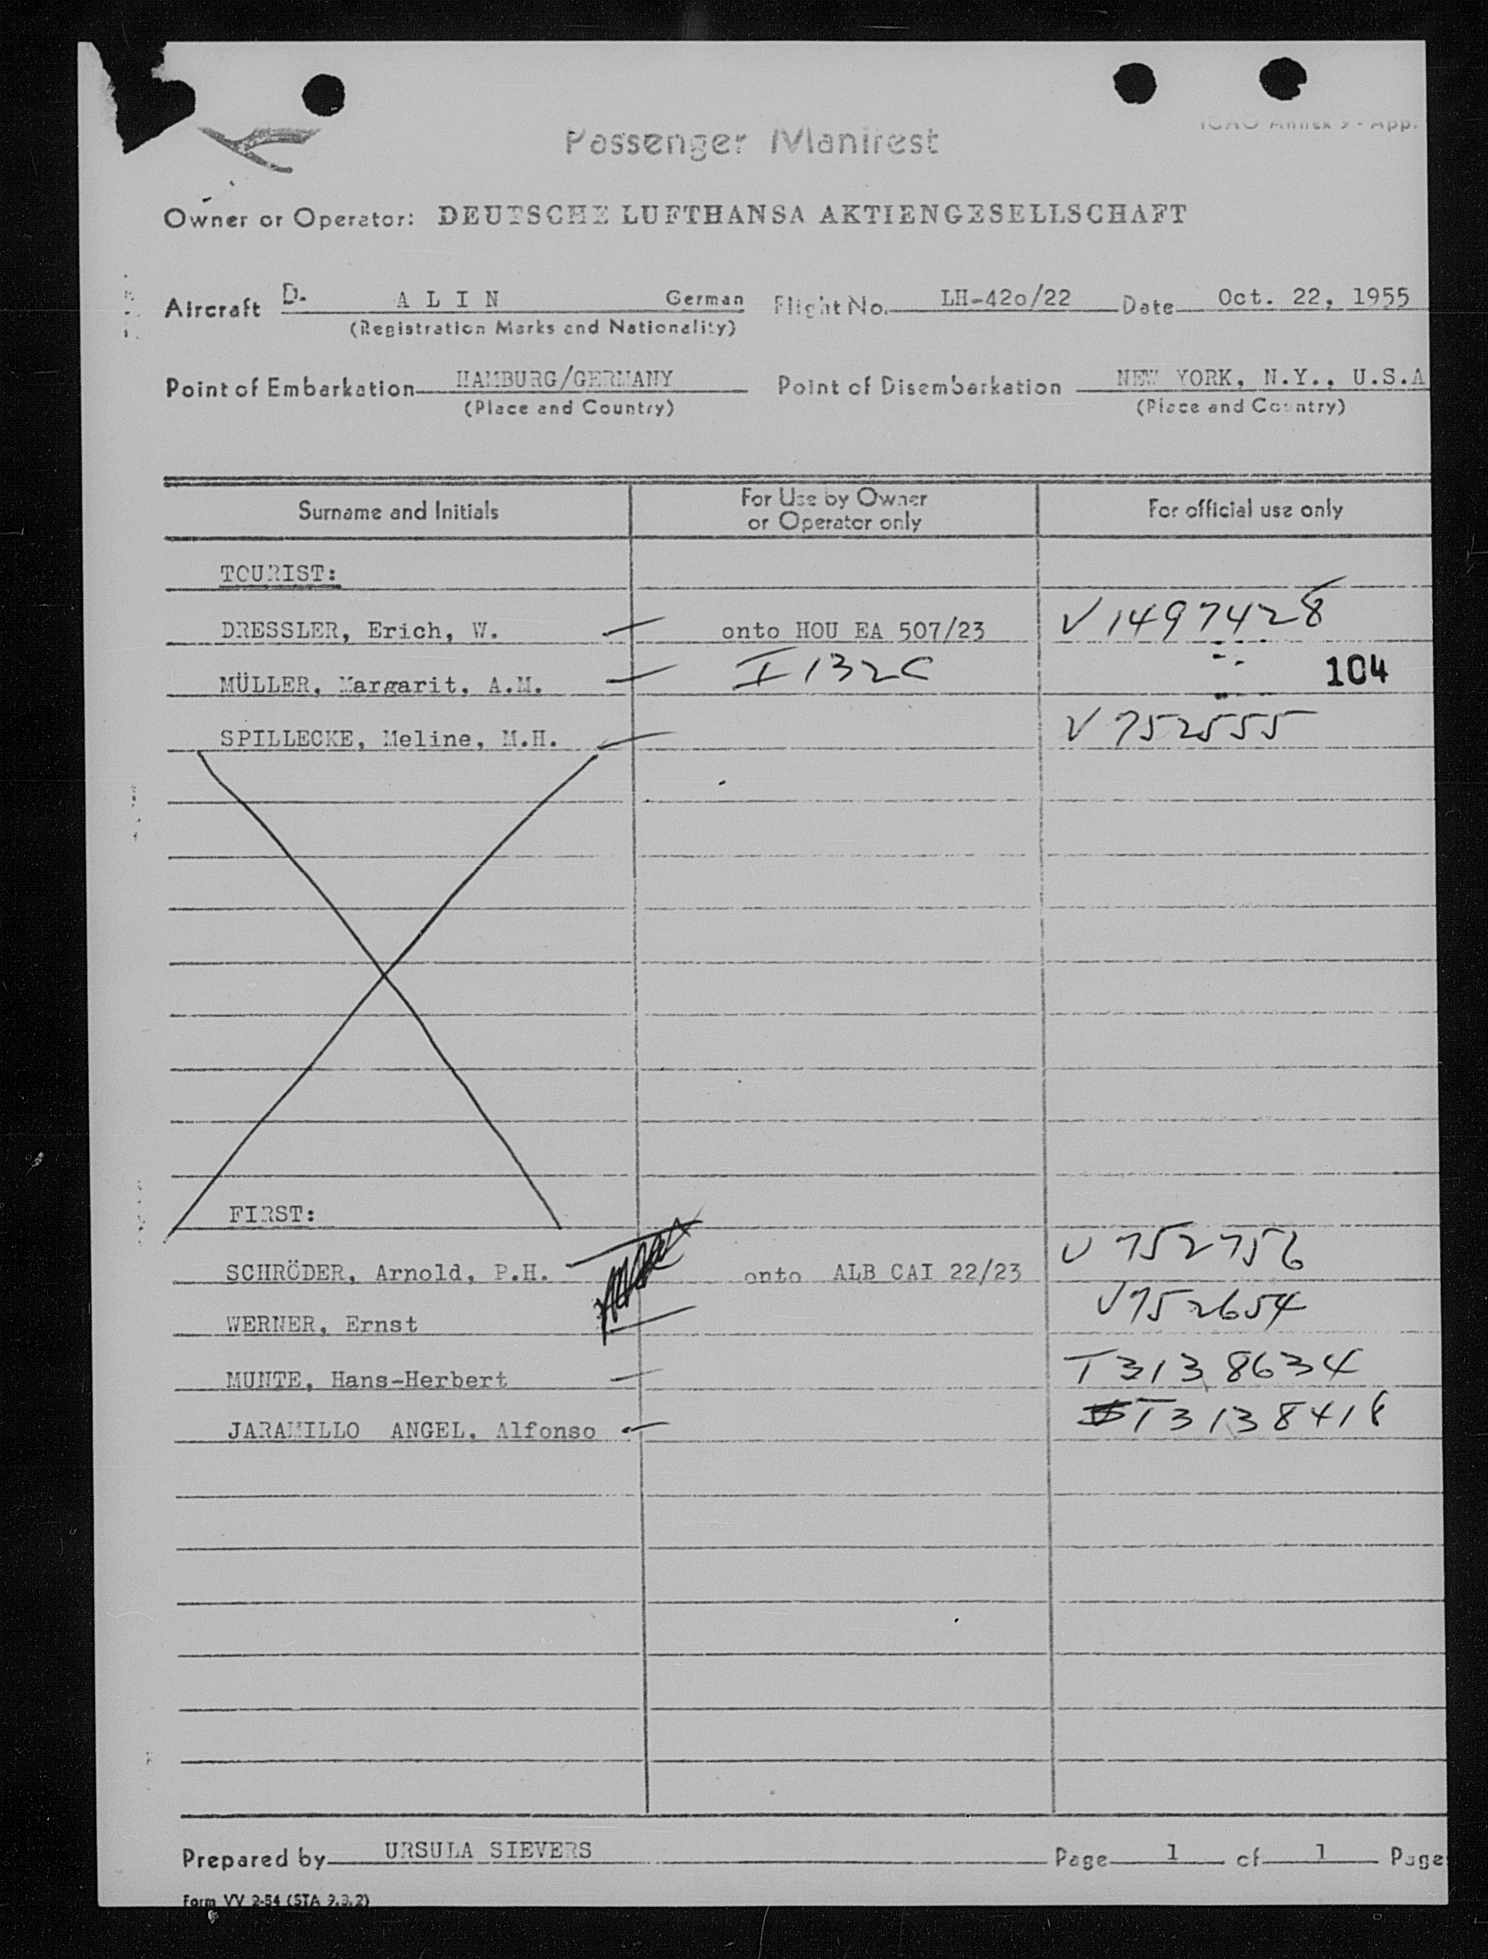 Passenger Manifest
ICAO Annex 9 - App.
Owner or Operator: DEUTSCHE LUFTHANSA AKTIENGESELLSCHAFT
Aircraft D- A L I N German Flight No. LH-42o/22 Date Oct. 22, 1955
(Registration Marks and Nationality)
Point of Embarkation HAMBURG/GERMANY Point of Disembarkation NEW YORK, N.Y., U.S.A
(Place and Country) (Place and Country)
Surname and Initials For Use by Owner or Operator only For official use only
TOURIST:
DRESSLER, Erich, W. onto HOU EA 507/23 V1497428
MÜLLER, Margarit, A.M. I 132C 104
SPILLECKE, Meline, M.H. V752555
FIRST:
SCHRÖDER, Arnold, P.H. onto ALB CAI 22/23 V752756
WERNER, Ernst V752654
MUNTE, Hans-Herbert T3138634
JARAMILLO ANGEL, Alfonso T3138418
Prepared by URSULA SIEVERS Page 1 of 1 Page
Form VV 2-54 (STA 9.3.2)